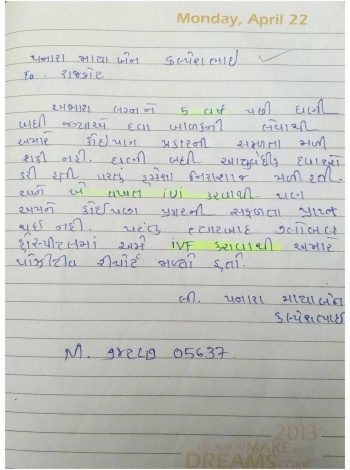 Monday, April 22
પનારા માયાબેન કલ્પેશભાઇ
To. રાજકોટ
અમારા લગ્નનાં 5 વર્ષ પછી ઘણી
બધી જગ્યાએ દવા બાળકની લેવાથી
અમારે કોઈપણ પ્રકારની સફળતા મળી
શકી નહી. ઘણી બધી આયુર્વેદીક દવાઓ
કરી હતી પરંતુ હંમેશા નિરાશાજ મળી હતી.
અને બે વખત iUi કરવાથી પણ
અમને કોઈપણ પ્રકારની સફળતા પ્રાપ્ત
થઈ નહી. પરંતુ ત્યારબાદ ગ્લોબલ
હોસ્પીટલમાં અમે iVF કરાવાથી અમારે
પોઝીટીવ રીપોર્ટ મળ્યો હતો.
લી. પનારા માયાબેન
કલ્પેશભાઇ
M. 05637.
2013
MAKE
DREAMS